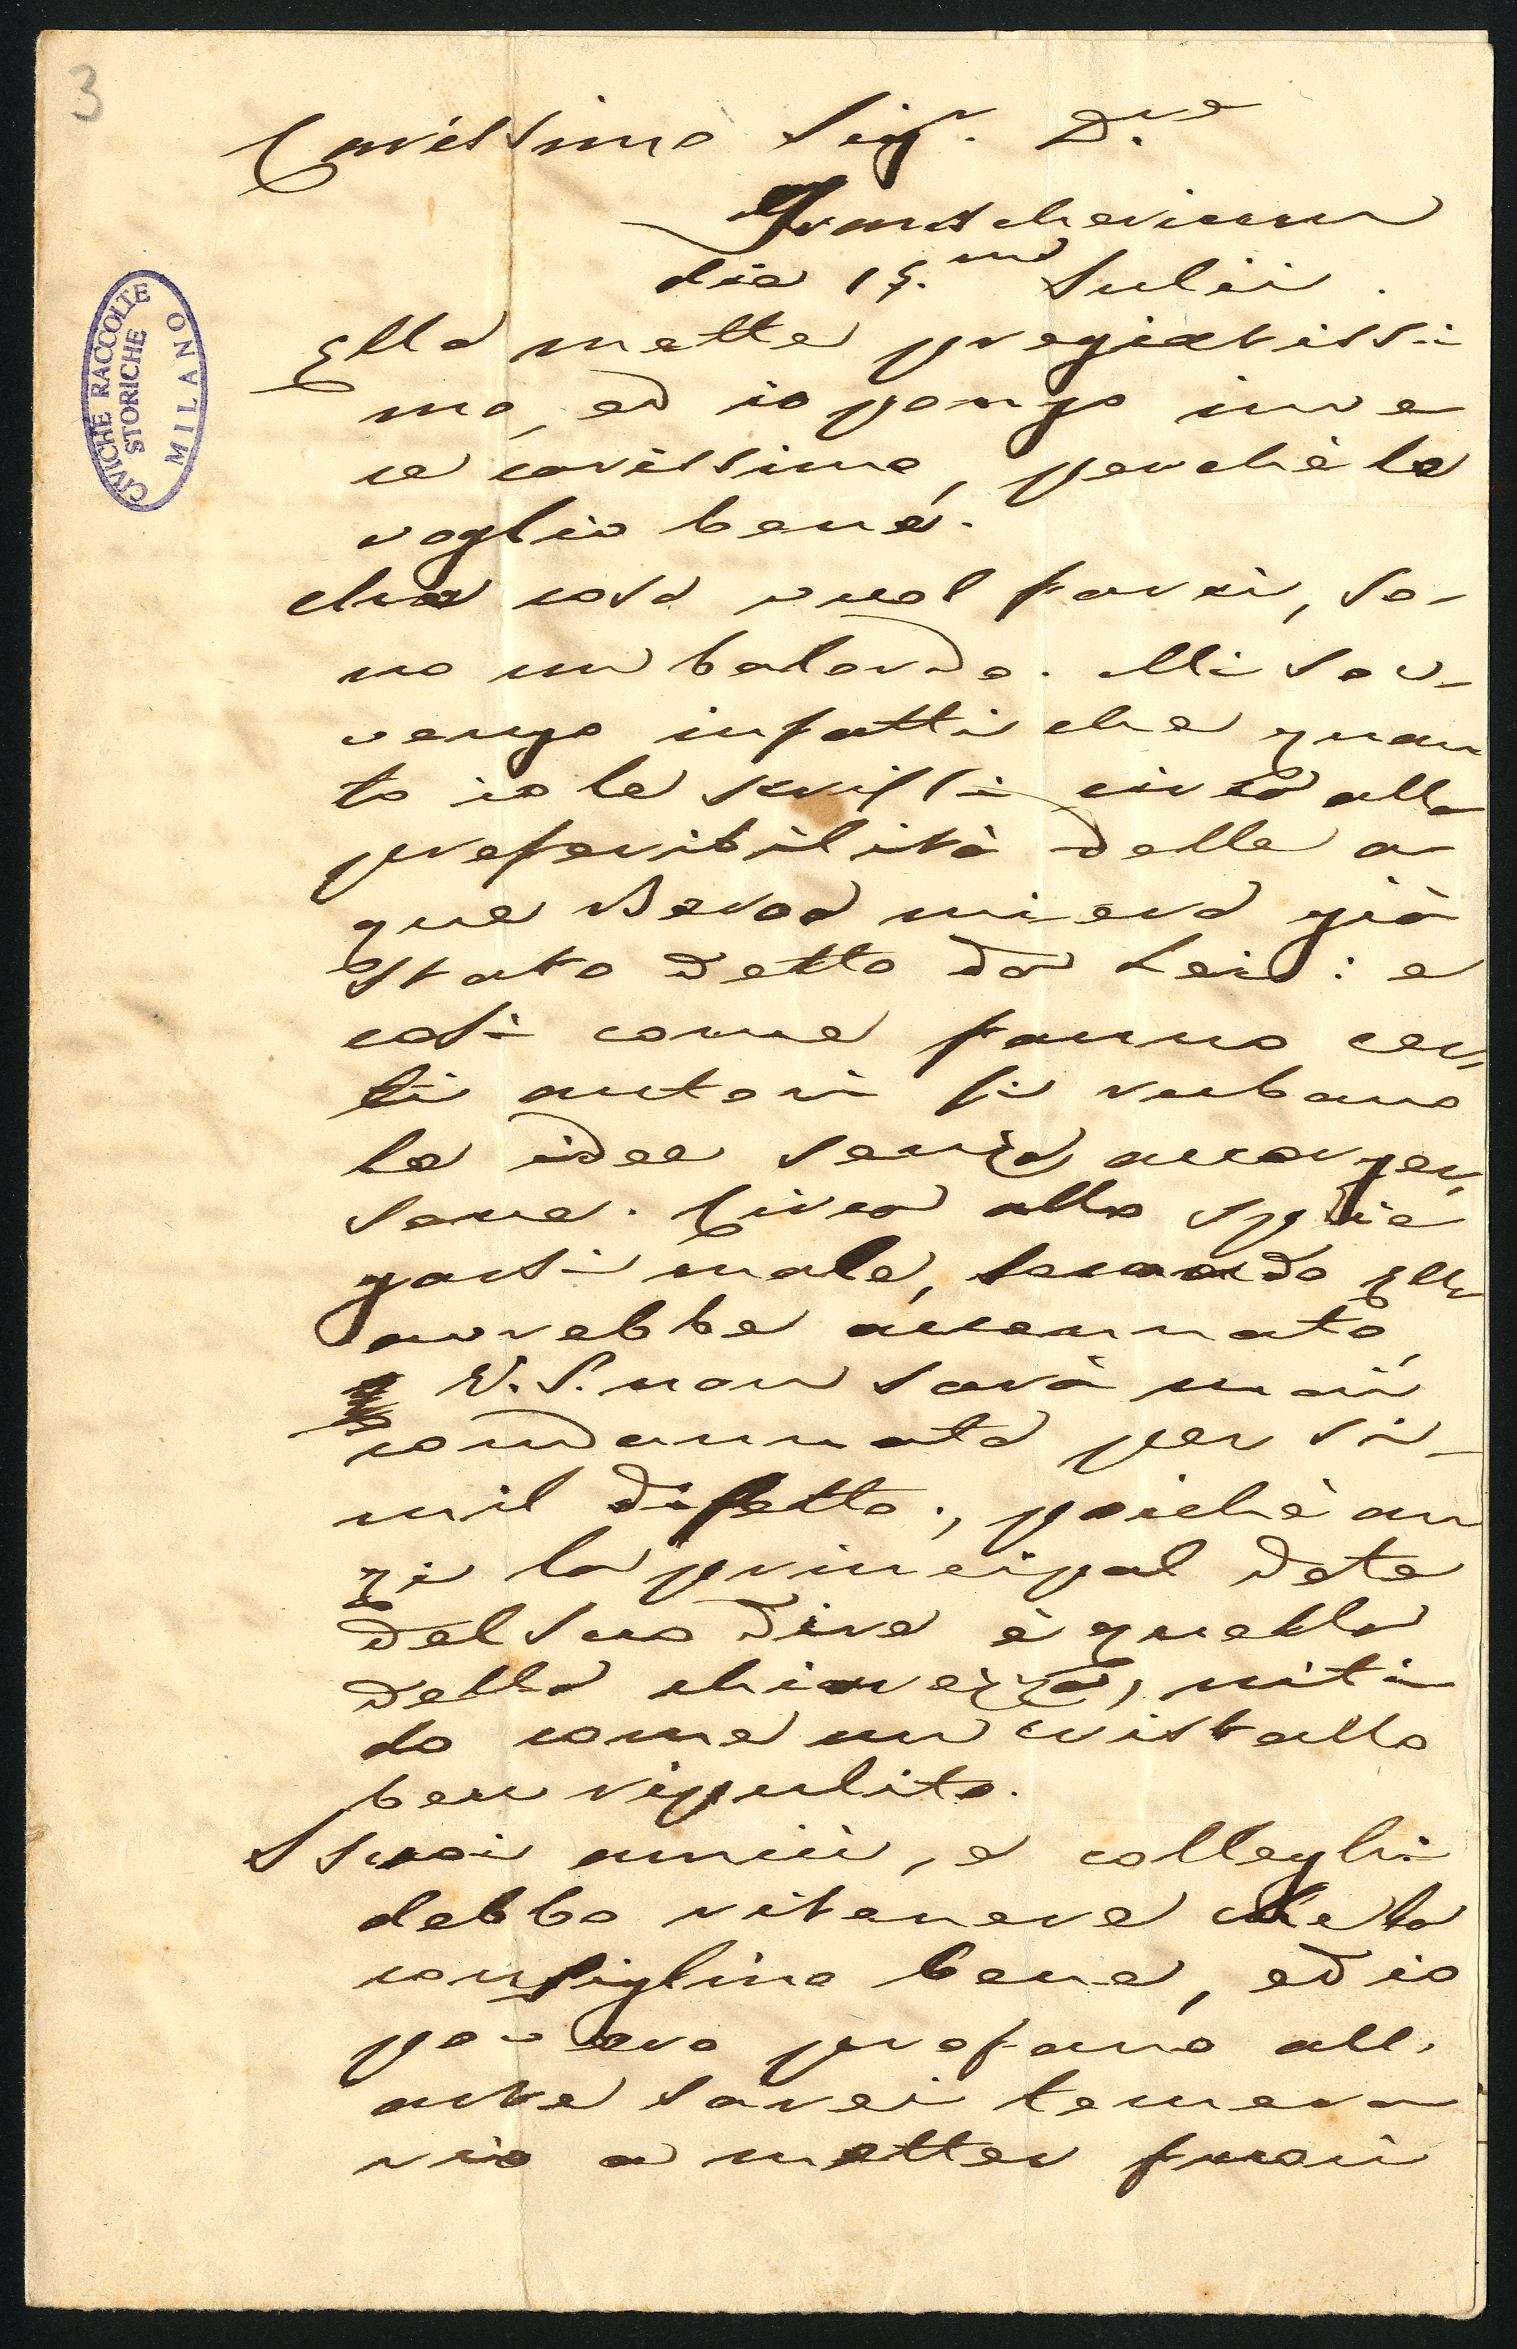 3
Carissimo Sig.r D.re
die 15.mo Julii.
CIVICHE RACCOLTE
STORICHE
MILANO
Ella mette pregiatissi-
mo, ed io pongo inve
ce carissimo, perchè le
voglio bene.
che cosa vuol farci, so-
no un balordo. Mi sov-
vengo infatti che quan
to io le scrissi circa alla
preferibilità delle a-
que mi era già
stato detto da Lei: e
così come fanno cer-
ti autori si rubano
le idee senza accorger-
sene. Circa allo spie
garsi male, secondo Ella
avrebbe accennato,
V. S. non sarà mai
condannata per si-
mil difetto; poichè an
zi la principal dote
del suo dire è quella
della chiarezza, niti-
do come un cristallo
ben ripulito.
I suoi amici, e colleghi
debbo ritenere che la
consiglino bene, ed io
povero profano all'
arte sarei temera-
rio a metter fuori